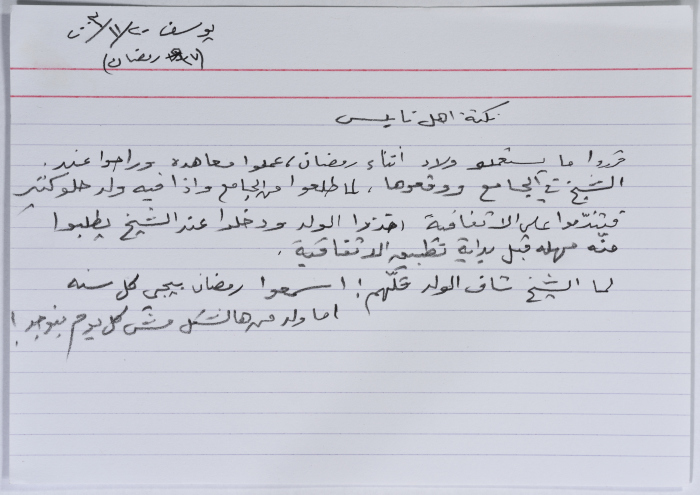 يوسف ٢٠٠/١١/
(٢٧ رمضان)
نكتة اهل نابلس
قرروا ما يستعملو ولاد أثناء رمضان، عملوا معاهده وراحوا عند
الشيخ في الجامع ووقعوها، لما طلعوا من الجامع واذا فيه ولد حلو كتير
فتندّموا على الاتفاقية اخذوا الولد ودخلوا عند الشيخ يطلبوا
منّه مهله قبل بداية تطبيق الاتفاقية.
لما الشيخ شاف الولد قلّهم! اسمعوا رمضان بيجي كل سنه
اما ولد من هالشكل مش كل يوم بنوجد!